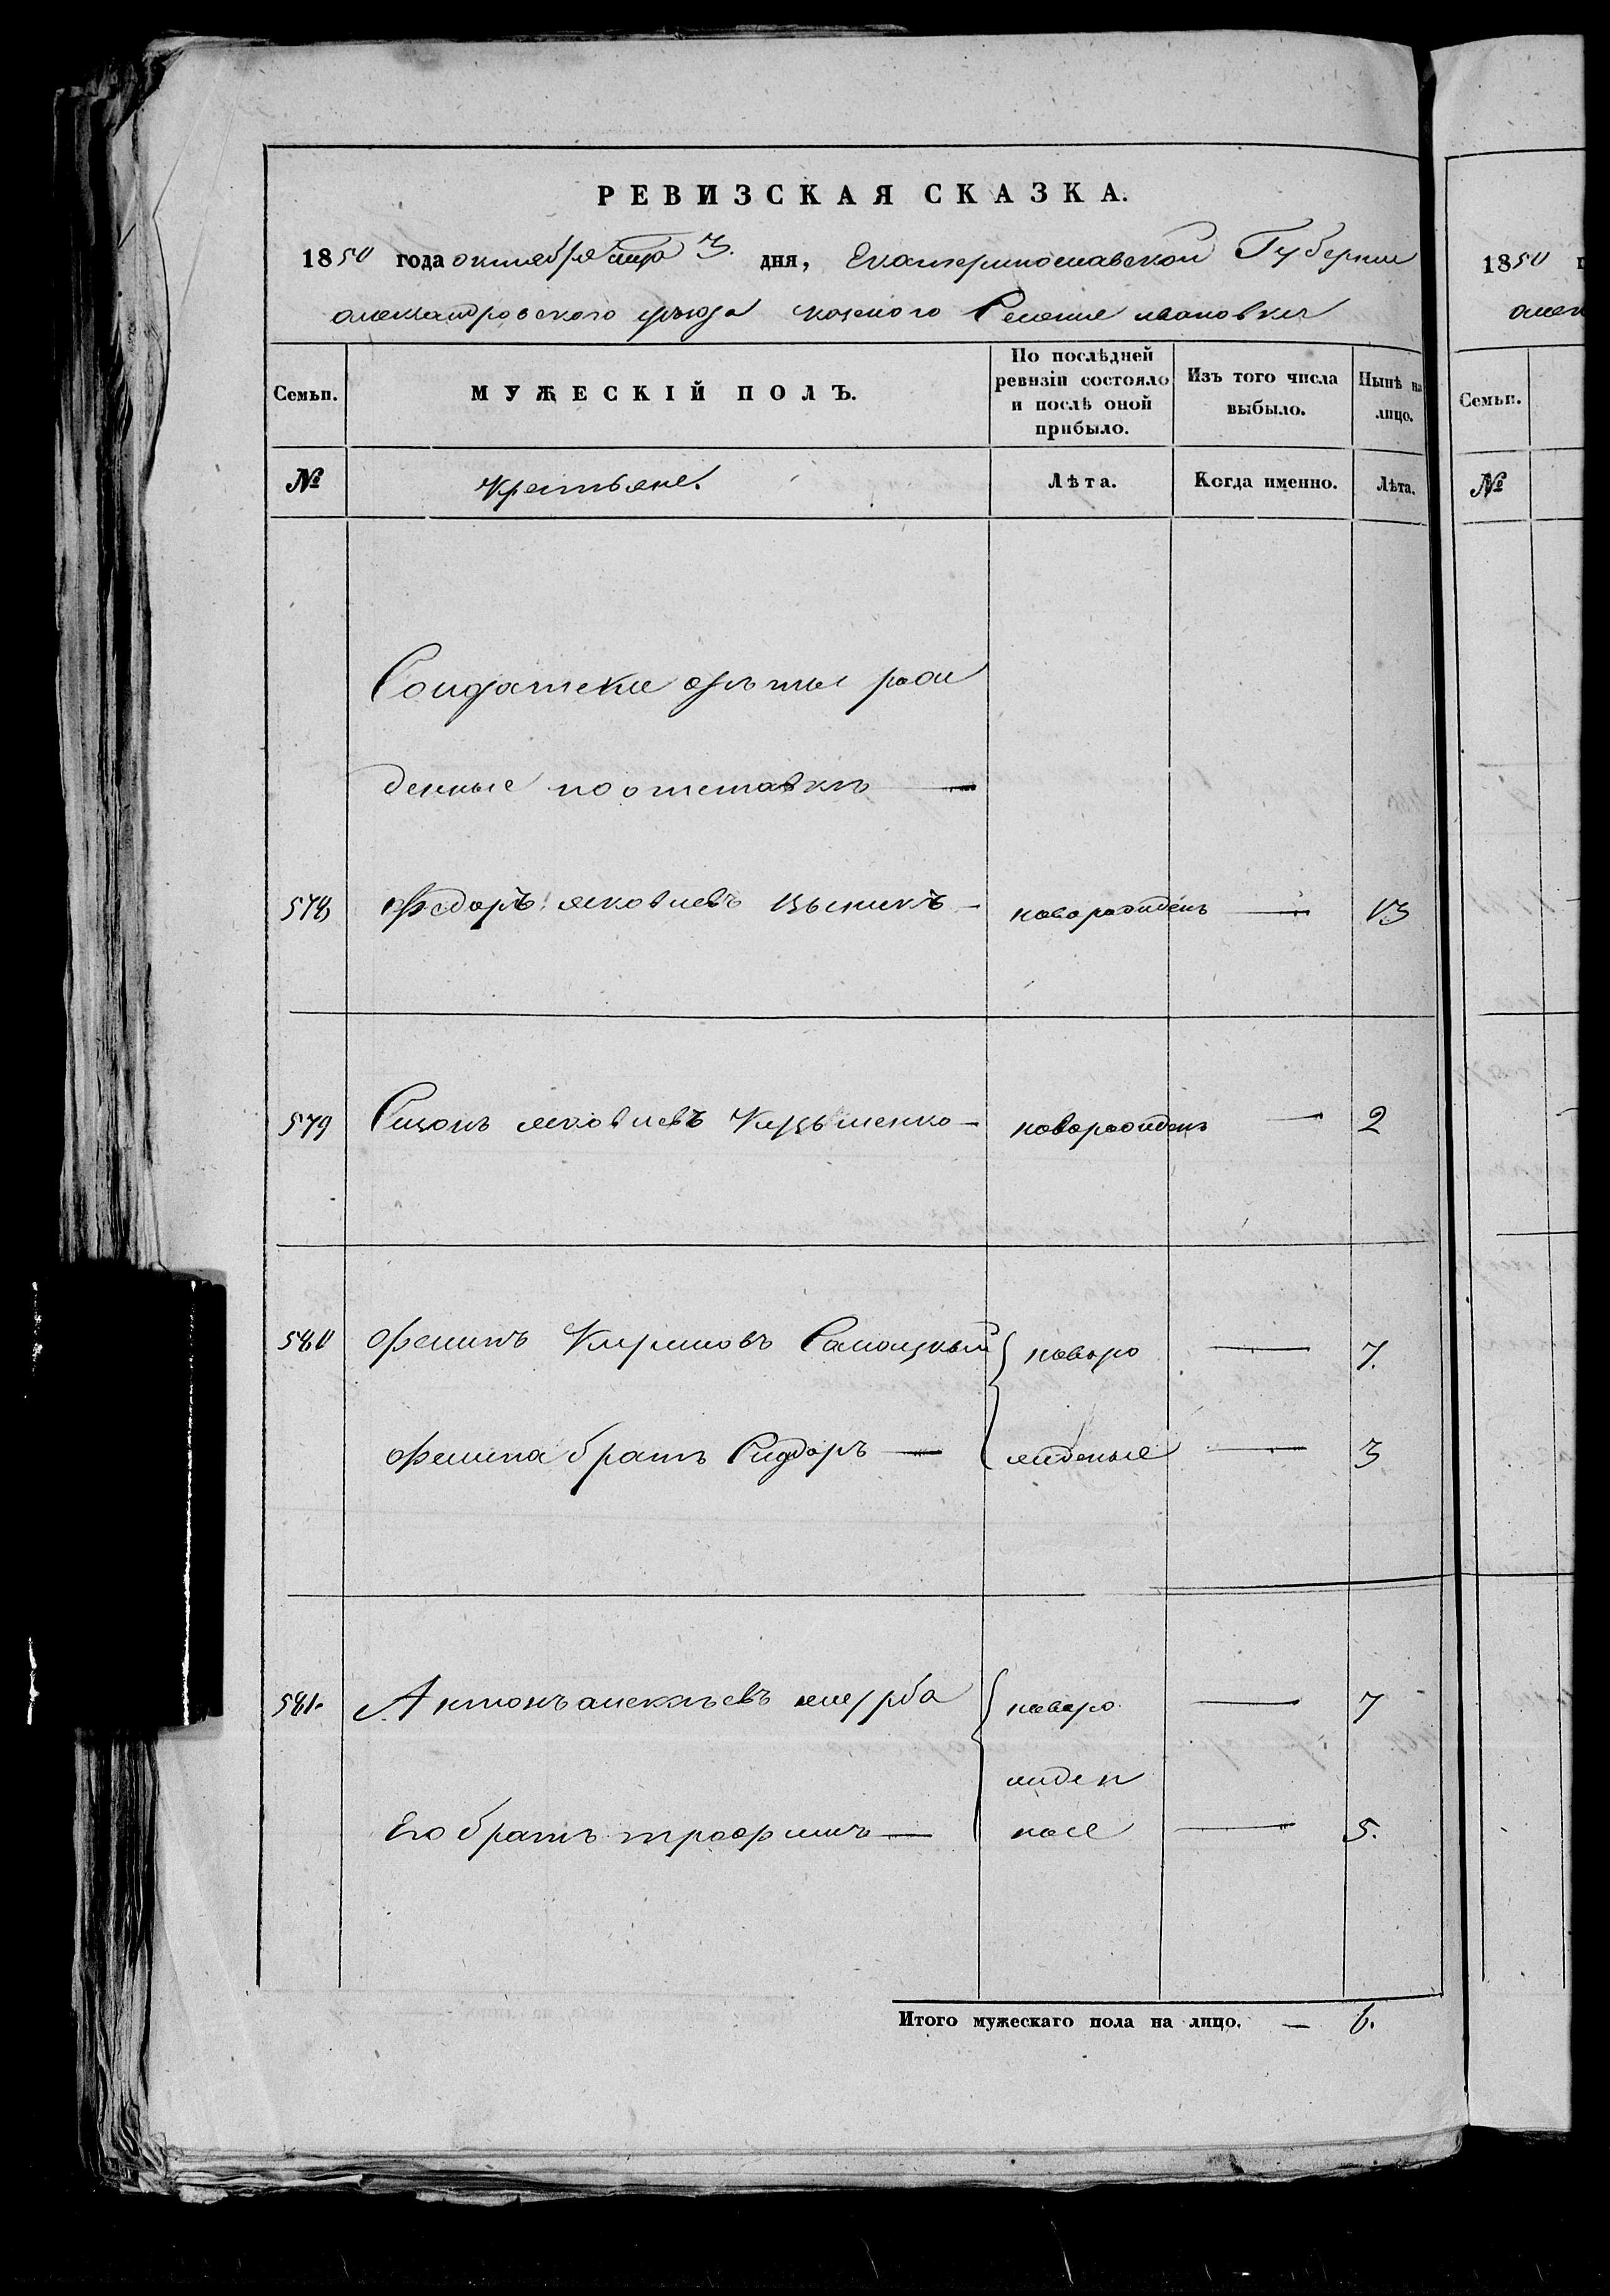 РЕВИЗСКАЯ СКАЗКА.
1850 года октября мца 3. дня, Екатеринославской Губернии
александровского уезда казеного Селения ивановки
Семьи.
МУЖЕСКІЙ ПОЛЪ.
По послѣдней ревизіи состояло и послѣ оной прибыло.
Изъ того числа выбыло.
Нынѣ на лицо.
№
Крестьяне.
Лѣта.
Когда именно.
Лѣта.
Солдатски дѣти рож
денные поотставкѣ —
578 Федоръ яковлевъ — новорожденъ — 13
579 яковлевъ — новорожденъ — 2
580 Филипъ Кириловъ новоро — 7.
Филипа братъ Сидоръ — жденые — 3
581. Антонъ алексѣевъ новоро — 7
жден
Его братъ трофимъ — ные — 5.
Итого мужескаго пола на лицо. — 6.
1850 г
алек
Семьи.
№